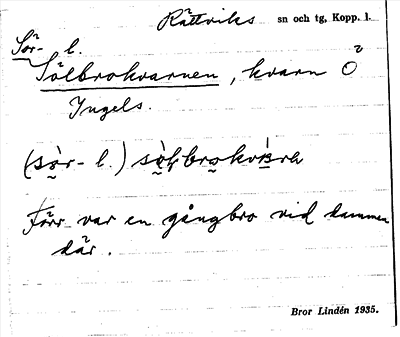 Rättviks sn och tg, Kopp. l.
Sör- l.
Sölbrokvarnen, kvarn Ö
Ingels.
(sör- l.) sölbrokvarn
Förr var en gångbro vid dammen
där.
Bror Lindén 1935.